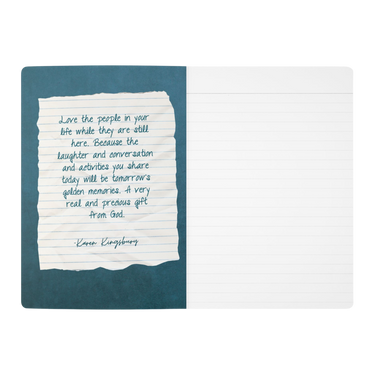 Love the people in your
life while they are still
here. Because the
laughter and conversation
and activities you share
today will be tomorrow's
golden memories. A very
real and precious gift
from God.
-Karen Kingsbury